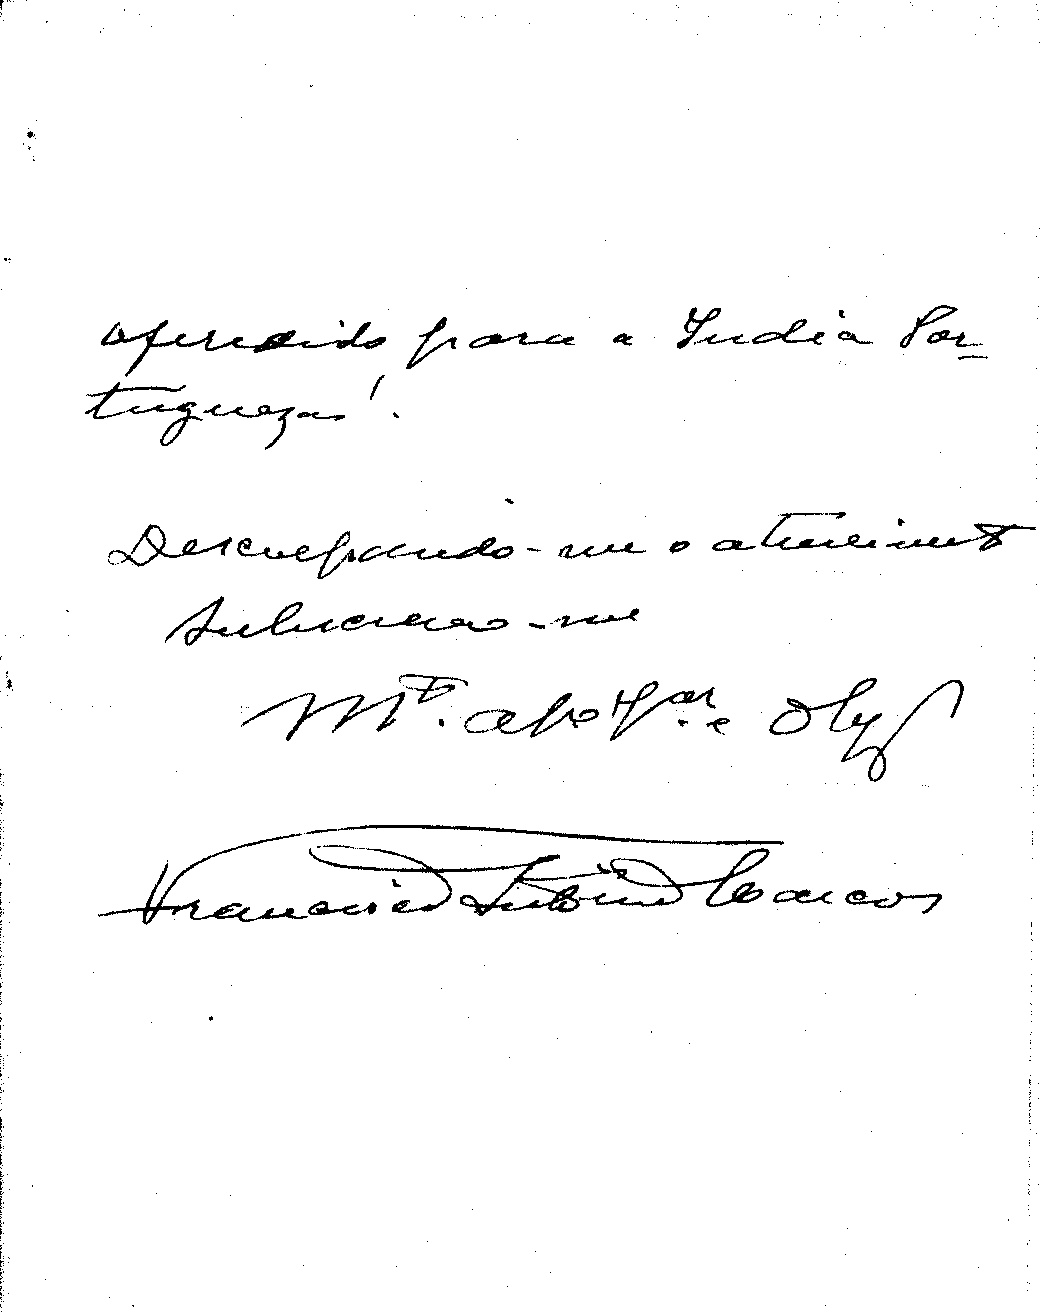 oferecido para a India Por-
tugueza!.
Desculpando-me o atrevimento
subscrevo-me
Mto. apo e Obg
Francisco António Marcos